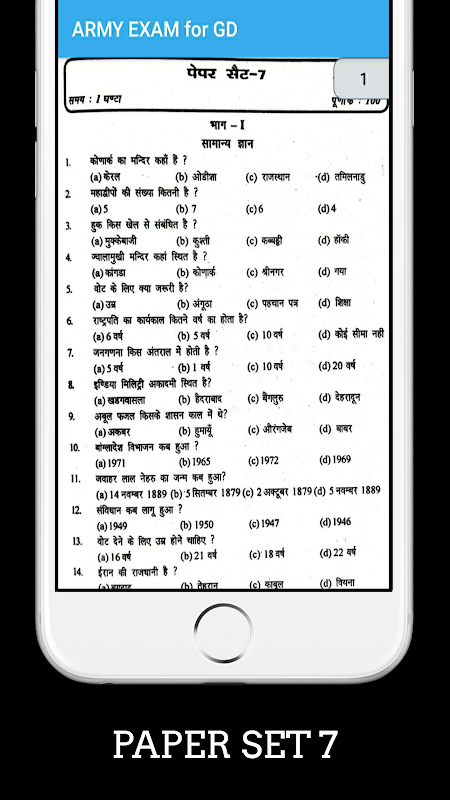 ARMY EXAM for GD
पेपर सैट-7
1
समय : 1 घण्टा
पूर्णांक : 100
भाग – I
सामान्य ज्ञान
1. कोणार्क का मन्दिर कहाँ है ?
(a) केरल (b) ओडीशा (c) राजस्थान (d) तमिलनाडु
2. महाद्वीपो की संख्या कितनी है ?
(a) 5 (b) 7 (c) 6 (d) 4
3. हुक किस खेल से संबंधित है ?
(a) मुक्केबाजी (b) कुश्ती (c) कब्बड्डी (d) हॉकी
4. ज्वालामुखी मन्दिर कहां स्थित है ?
(a) कांगडा (b) कोणार्क (c) श्रीनगर (d) गया
5. वोट के लिए क्या जरूरी है?
(a) उम्र (b) अंगूठा (c) पहचान पत्र (d) शिक्षा
6. राष्ट्रपति का कार्यकाल कितने वर्ष का होता है?
(a) 6 वर्ष (b) 5 वर्ष (c) 10 वर्ष (d) कोई सीमा नही
7. जनगणना किस अंतराल में होती है ?
(a) 5 वर्ष (b) 1 वर्ष (c) 10 वर्ष (d) 20 वर्ष
8. इण्डिया मिलिट्री अकादमी स्थित है?
(a) खडगवासला (b) हैदराबाद (c) बैंगलुरु (d) देहरादून
9. अबूल फजल किसके शासन काल में थे?
(a) अकबर (b) हुमायूँ (c) औरंगजेब (d) बाबर
10. बांग्लादेश विभाजन कब हुआ ?
(a) 1971 (b) 1965 (c) 1972 (d) 1969
11. जवाहर लाल नेहरु का जन्म कब हुआ?
(a) 14 नवम्बर 1889 (b) 5 सितम्बर 1879 (c) 2 अक्टूबर 1879 (d) 5 नवम्बर 1889
12. संविधान कब लागू हुआ ?
(a) 1949 (b) 1950 (c) 1947 (d) 1946
13. वोट देने के लिए उम्र होने चाहिए ?
(a) 16 वर्ष (b) 21 वर्ष (c) 18 वर्ष (d) 22 वर्ष
14. ईरान की राजधानी है ?
(a) बगदाद (b) तेहरान (c) काबूल (d) वियना
PAPER SET 7